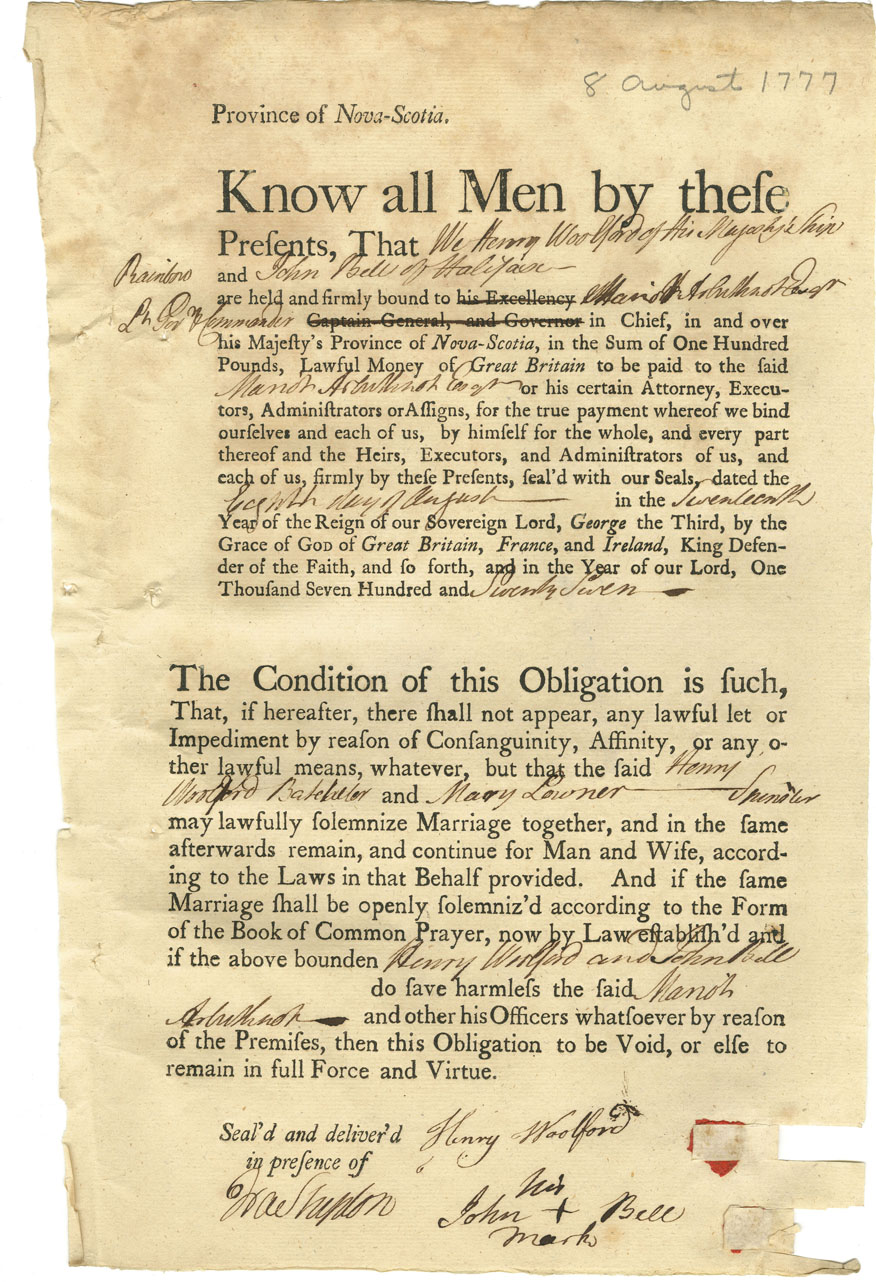 8 August 1777
Province of Nova-Scotia.
Know all Men by theſe
Preſents, That We Henry Woolford of His Majesty's Ship
Rainbow and John Bell of Halifax
are held and firmly bound to his Excellency Mariot Arbuthnot Esqr
Lt Govr & Commander Captain General, and Governor in Chief, in and over
his Majeſty's Province of Nova-Scotia, in the Sum of One Hundred
Pounds, Lawful Money of Great Britain to be paid to the ſaid
Mariot Arbuthnot Esqr or his certain Attorney, Execu-
tors, Adminiſtrators or Aſſigns, for the true payment whereof we bind
ourſelves and each of us, by himſelf for the whole, and every part
thereof and the Heirs, Executors, and Adminiſtrators of us, and
each of us, firmly by theſe Preſents, ſeal'd with our Seals, dated the
Eighth day of August in the Seventeenth
Year of the Reign of our Sovereign Lord, George the Third, by the
Grace of God of Great Britain, France, and Ireland, King Defen-
der of the Faith, and ſo forth, and in the Year of our Lord, One
Thouſand Seven Hundred and Seventy Seven
The Condition of this Obligation is ſuch,
That, if hereafter, there ſhall not appear, any lawful let or
Impediment by reaſon of Conſanguinity, Affinity, or any o-
ther lawful means, whatever, but that the ſaid Henry
Woolford Batchelor and Mary Lowner Spinster
may lawfully ſolemnize Marriage together, and in the ſame
afterwards remain, and continue for Man and Wife, accord-
ing to the Laws in that Behalf provided. And if the ſame
Marriage ſhall be openly ſolemniz'd according to the Form
of the Book of Common Prayer, now by Law eſtabliſh'd and
if the above bounden Henry Woolford and John Bell
do ſave harmleſs the ſaid Mariot
Arbuthnot and other his Officers whatſoever by reaſon
of the Premiſes, then this Obligation to be Void, or elſe to
remain in full Force and Virtue.
Seal'd and deliver'd Henry Woolford
in preſence of
his
John + Bell
mark